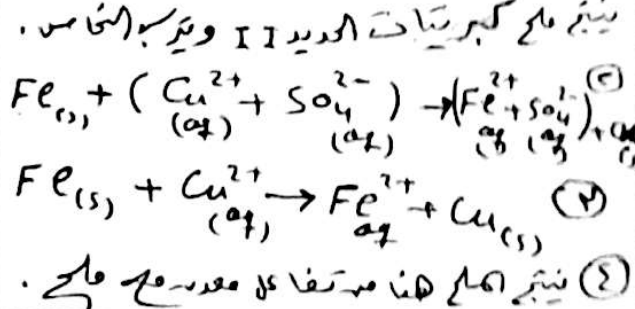 ينتج ملح كبريتات الحديد II ويترسب النحاس .
Fe(s) + ( Cu²⁺(aq) + So₄²⁻(aq) ) → (Fe²⁺(aq) + So₄²⁻(aq)) + Cu(s) (٢)
Fe(s) + Cu²⁺(aq) → Fe²⁺aq + Cu(s) (٣)
(٤) ينتج الملح هنا من تفاعل معدن مع ملح .